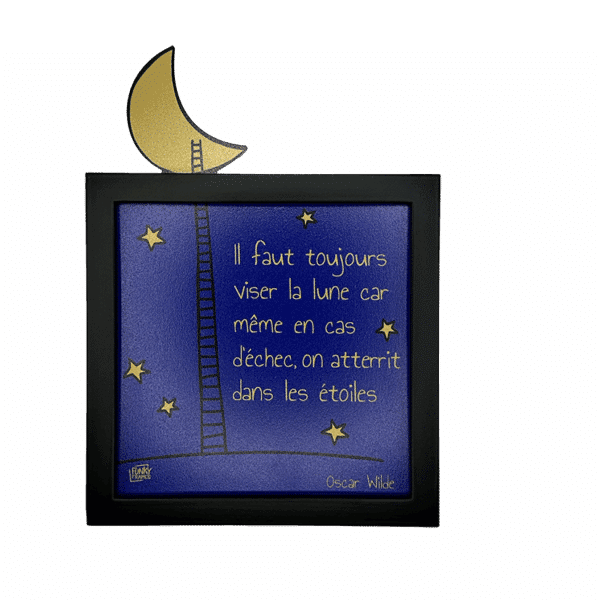 Il faut toujours
viser la lune car
même en cas
d'échec, on atterrit
dans les étoiles
FUNKY
FRAMES
Oscar Wilde